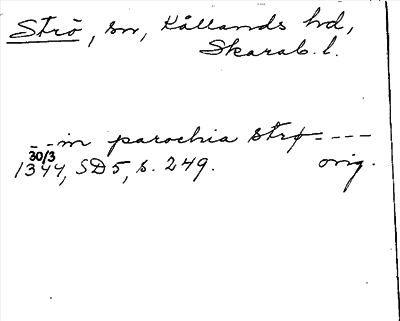 Strö, sn, Kållands hd,
Skarab. l.
- - in parochia Strø - - - -
30/3
1344, SD 5, s. 249. orig.